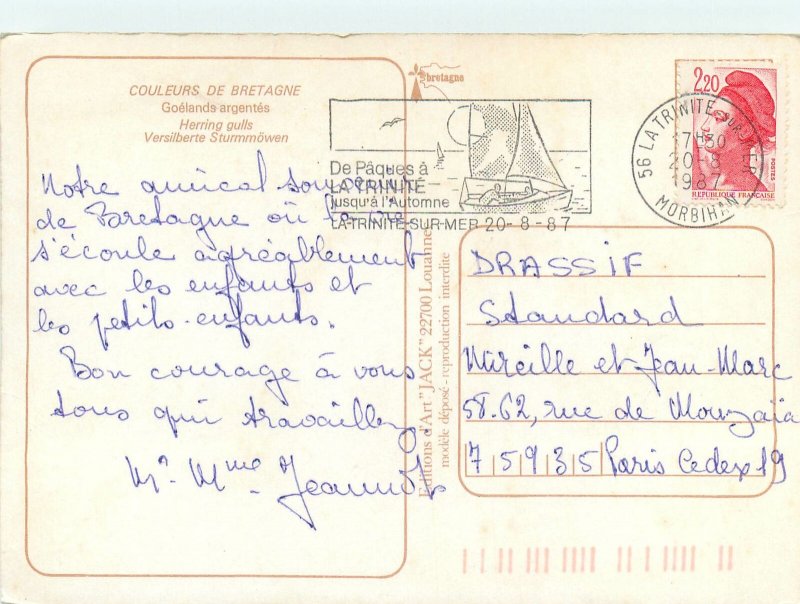 COULEURS DE BRETAGNE
Goélands argentés
Herring gulls
Versilberte Sturmmöwen
bretagne
De Pâques à
LA TRINITÉ
jusqu'à l'Automne
LA-TRINITE-SUR-MER 20-8-87
2,20
POSTES
REPUBLIQUE FRANÇAISE
56 LA TRINITE SUR MER
17H30
20-8
1987
MORBIHAN
Notre amical souvenir
de Bretagne où la vie
s'écoule agréablement
avec les enfants et
les petits-enfants.
Bon courage à vous
tous qui travaillez.
Mr Mme Jeannot
Editions d'Art "JACK" 22700 Louannec
modèle déposé - reproduction interdite
DRASSIF
Standard
Mireille et Jean-Marc
58.62, rue de Mouzaïa
75935 Paris Cedex 19